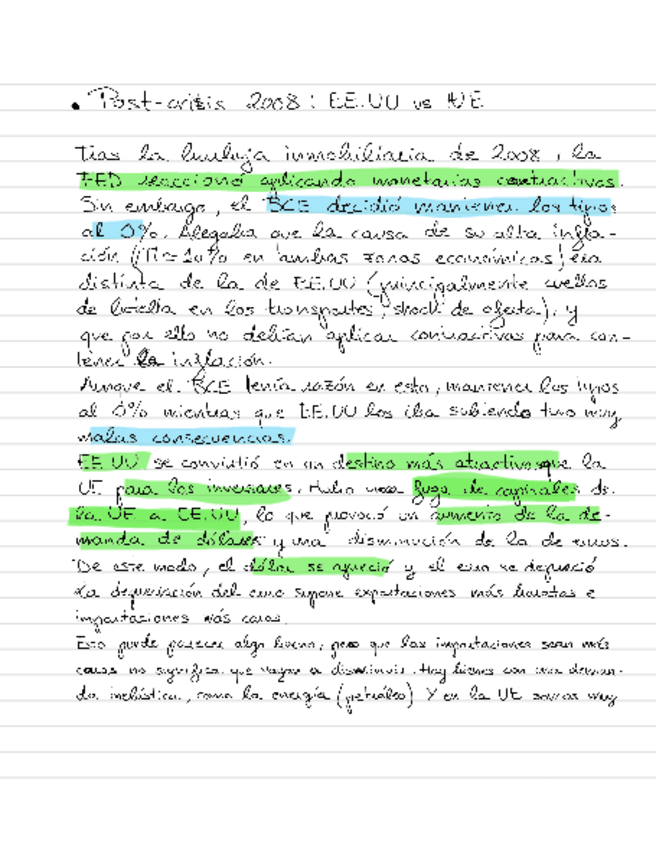 • Post-crisis 2008: EE.UU vs UE
Tras la burbuja inmobiliaria de 2008, la
FED reaccionó aplicando monetarias contractivas.
Sin embargo, el BCE decidió mantener los tipos
al 0%. Alegaba que la causa de su alta infla-
ción (π≈10% en ambas zonas económicas) era
distinta de la de EE.UU (principalmente cuellos
de botella en los transportes, shock de oferta), y
que por ello no debían aplicar contractivas para con-
tener la inflación.
Aunque el BCE tenía razón en esto, mantener los tipos
al 0% mientras que EE.UU los iba subiendo tuvo muy
malas consecuencias.
EE.UU se convirtió en un destino más atractivo que la
UE para los inversores. Hubo una fuga de capitales de
la UE a EE.UU, lo que provocó un aumento de la de-
manda de dólares y una disminución de la de euros.
De este modo, el dólar se apreció y el euro se depreció
La depreciación del euro supone exportaciones más baratas e
importaciones más caras.
Esto puede parecer algo bueno, pero que las importaciones sean más
caras no significa que vayan a disminuir. Hay bienes con una deman-
da inelástica, como la energía (petróleo) Y en la UE somos muy